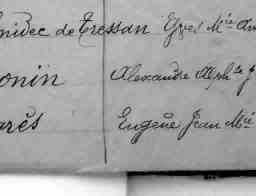 nidec de Tressan Yves Mie Am
onin Alexandre Alph.te J
arês Eugène Jean Mie